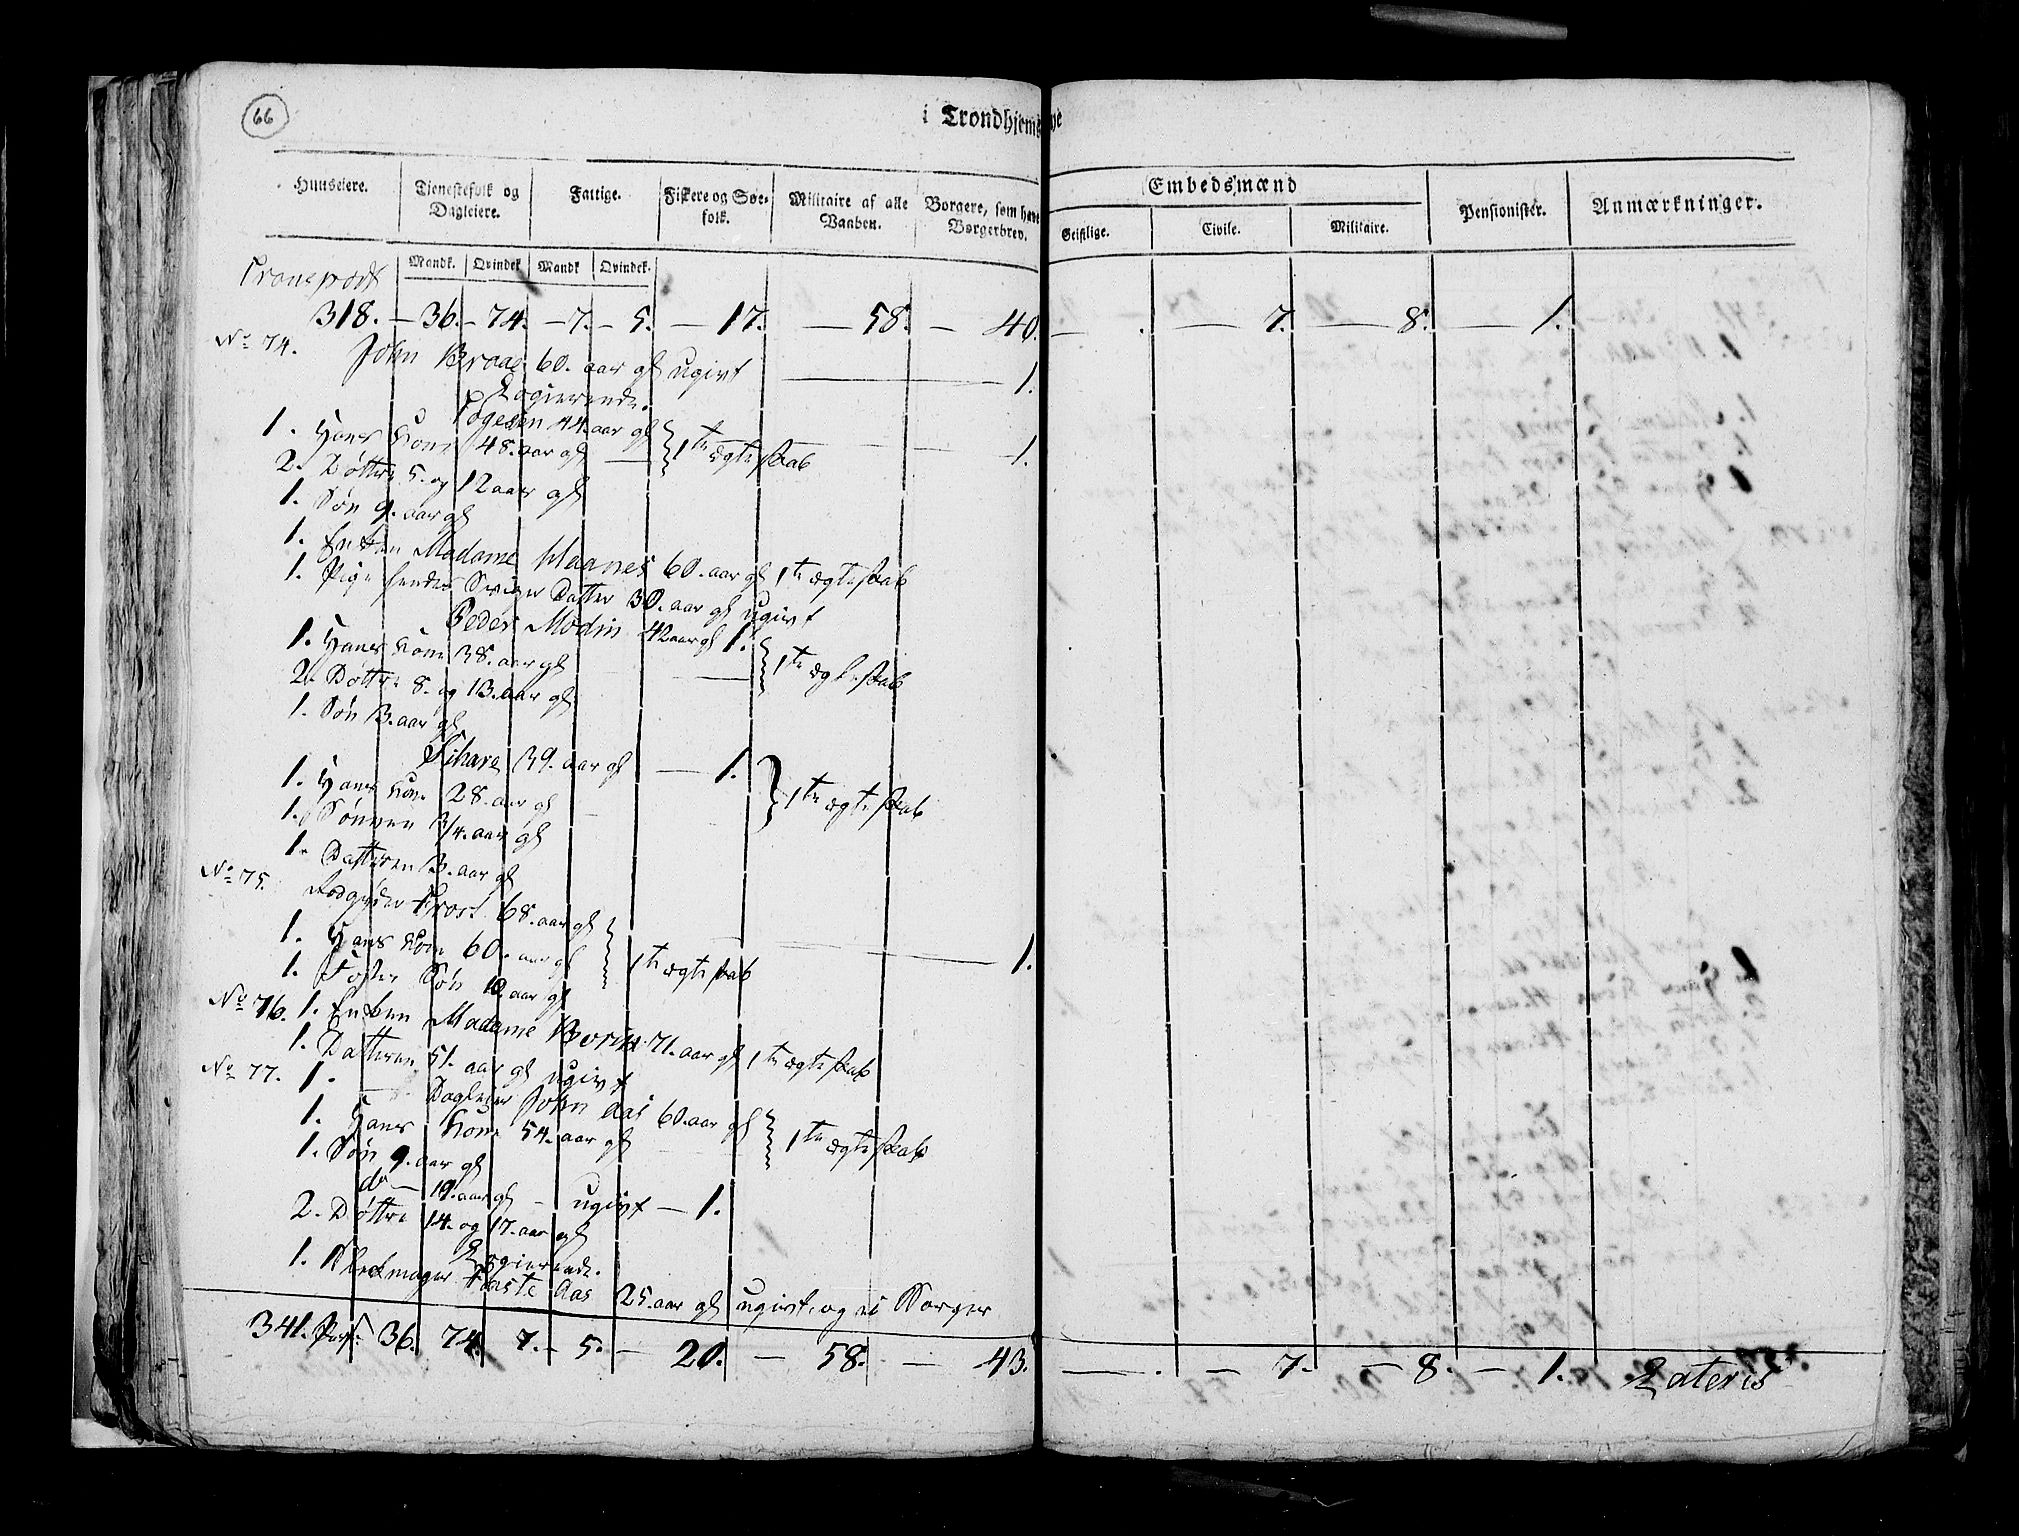 66
i Trondhjems Bye
Huuseiere.
Tjenestefolk og Dagleiere.
Fattige.
Fiskere og Søefolk.
Militaire af alle Vaaben.
Borgere, som have Borgerbrev.
Embedsmænd
Geistlige.
Civile.
Militaire.
Pensionister.
Anmærkninger.
Mandk. Qvindek. Mandk Qvindek.
Transport
318. — 36. — 74. — 7. — 5. — 17. — 58. — 40. — . — 7. — 8. — 1.
No 74. John Braae 60. aar gl ugivt — 1.
Logierende.
Togesen 44. aar gl
1. Hans Kone 48. aar gl — 1te ægteskab — 1.
2. Døttre 5. og 12 aar gl
1. Søn 9. aar gl
1. Enken Madame Maanes 60. aar gl 1te ægteskab
1. Pige hendes Datter 30. aar gl ugivt
Peder Modin 42 aar gl 1.
1. Hans Kone 38. aar gl — 1te ægteskab
2. Døttre 8. og 13. aar gl
1. Søn 3. aar gl
39. aar gl — 1.
1. Hans Kone 28. aar gl — 1te ægteskab
1. Sønnen 3/4. aar gl
1. Datteren 3. aar gl
No 75. Frost 68. aar gl
1. Hans Kone 60. aar gl 1te ægteskab — 1.
1. Foster Søn 10. aar gl
No 76. 1. Enken Madame 71. aar gl 1te ægteskab
1. Datteren 51. aar gl ugivt
No 77. 1. Dagleier John Aas 60. aar gl
1. Hans Kone 54. aar gl 1te ægteskab
1. Søn 9. aar gl
do — 19. aar gl — ugivt — 1.
2. Døttre 14. og 17. aar gl
Logierende.
1. Skomager Aas 25. aar gl ugivt, og ei Borger
341. Pers: 36. 74. 7. — 5. — 20. — 58. — 43. — . — 7. — 8. — 1. Lateris